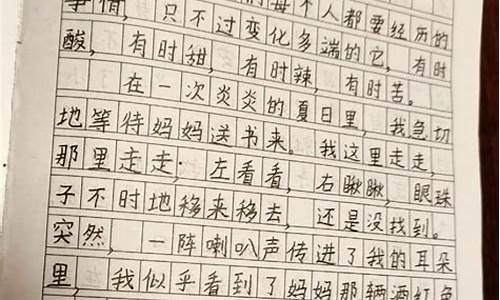 事情，只不过变化多端的它，有时
酸，有时甜，有时辣，有时苦。
在一次炎炎的夏日里，我急切
地等待妈妈送书来。我这里走走，
那里走走；左看看，右瞅瞅，眼珠
子不时地移来移去，还是没找到。
突然，一阵喇叭声传进了我的耳朵
里，我似乎看到了妈妈那辆酒红色